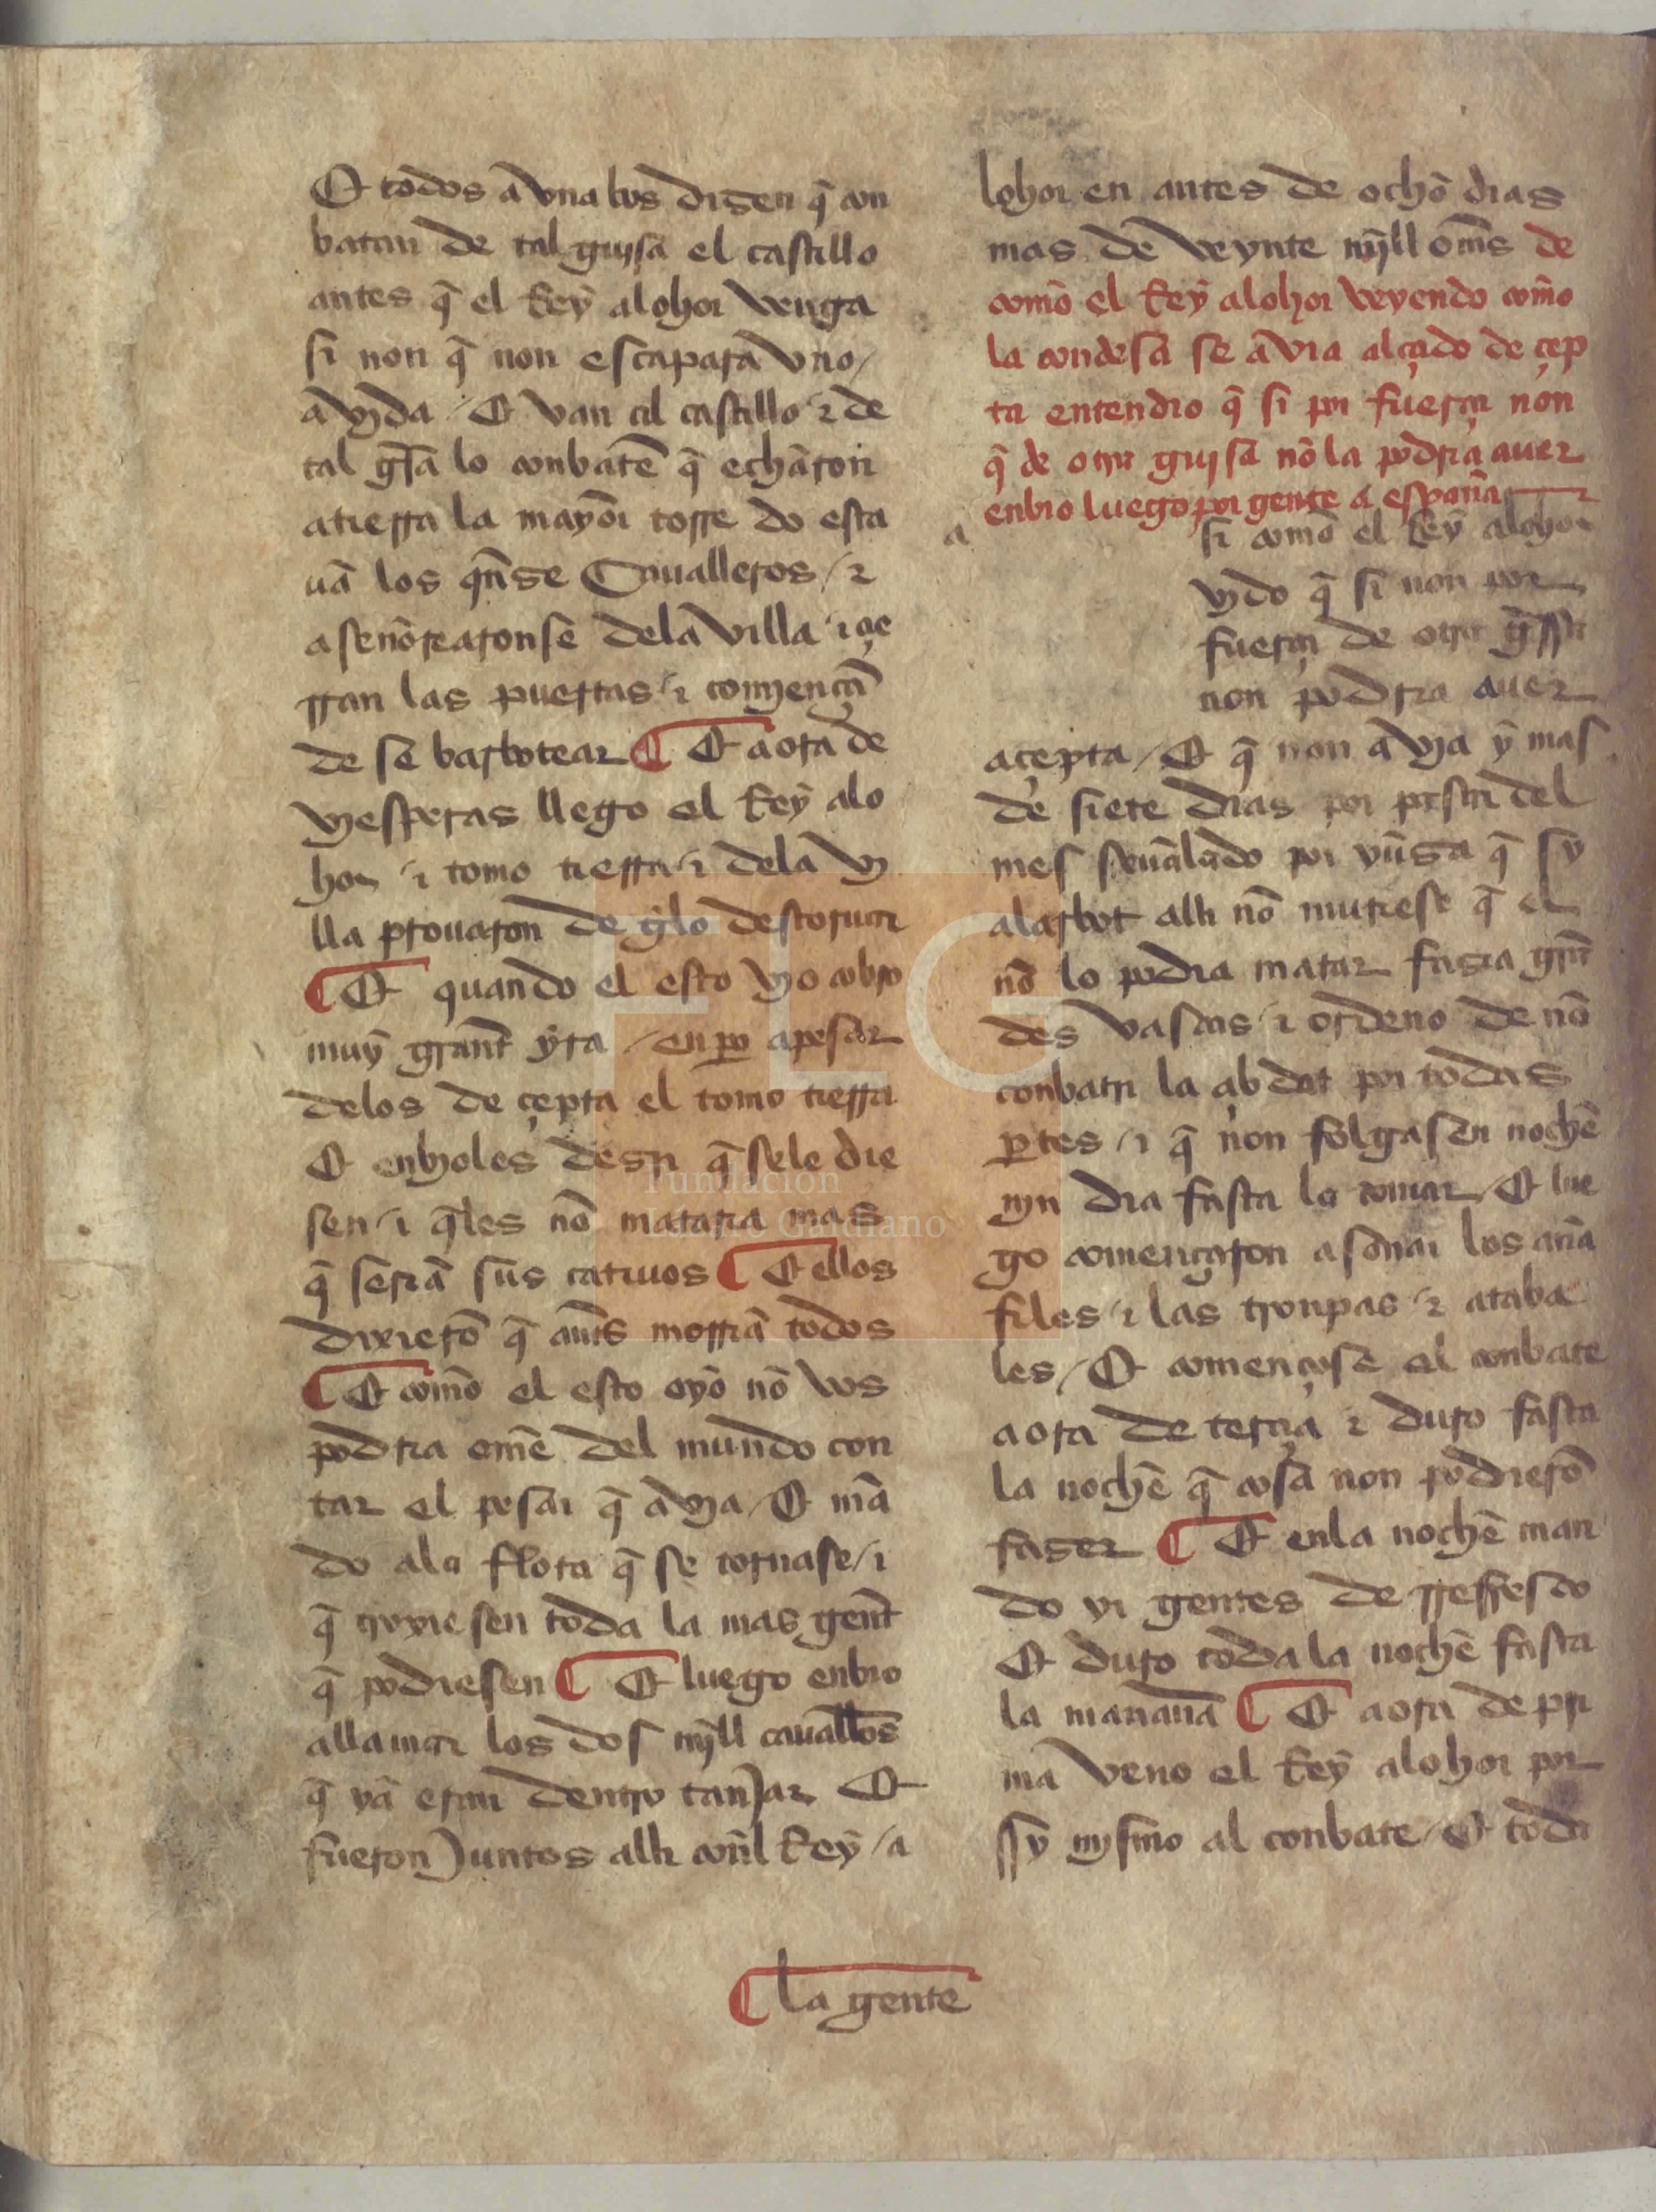 Et todos a vna bos disen q̄ con
batan de tal guysa el castillo
antes q̄ el Rey alohor venga
si non q̄ non escapara vno /
a vyda / Et van al castillo / ⁊ de
tal gͥsa lo conbatē q̄ echaron
atierra la mayor torre do esta
uā los qͥnse Caualleros / ⁊
aseñorearonse dela villa / ⁊ çe
rran las puertas / ⁊ comyençā
de se barbotear ¶ Et aora de
vyesperas llego el Rey alo
hor / ⁊ tomo tierra / ⁊ dela vy
lla prouaron de gͥlo destoruar
¶ Et quando el esto vyo cobro
muy grant̄ yra / enpo apesar
delos de çepta el tomo tierra
Et enbyoles desir q̄ sele die
sen / ⁊ q̄les nō mataria mas
q̄ seriā sus catiuos ¶ Et ellos
dixierō q̄ ant̄s morriā todos
¶ Et como el esto oyo nō vos
podria omē del mundo con
tar el pesar q̄ avya / Et mā
do ala flota q̄ se tornase / ⁊
q̄ troxiesen toda la mas gent̄
q̄ podiesen ¶ Et luego enbio
allamar los dos myll cauallo᷉s
q̄ yā eran dentro tanjar Et
fueron Juntos alli conl Rey / a
lohor en antes de ocho dias
mas de veynte myll oms̄ de
como el Rey alohor veyendo como
la condesa se avia alçado de çep
ta entendio q̄ si por fuerça non
q̄ de otra guysa nō la podria auer
enbio luego por gente a españa
a
si como el Rey alohor
vydo q̄ si non por
fuerça de otra gͥssa
non podria auer
açepta / Et q̄ non avya y mas
de siete dias por pasar del
mes señalado por yuñga q̄ sy
alarbot alli nō muriese q̄ el
nō lo podia matar fasia grā
des vascas / ⁊ ordeno de nō
conbatir la çibdat por todas
ꝑtes / ⁊ q̄ non folgasen noche
nyn dia fasta la tomar / Et lue
go comencaron asonar los aña
files / ⁊ las tronpas / ⁊ ataba
les / Et començose el conbate
aora de terçia ⁊ duro fasta
la noche q̄ cosa non podierō
faser ¶ Et enla noche man
do yr gentes de rrefresco
Et duro toda la noche fasta
la mañana ¶ Et aora de pri
ma veno el Rey alohor por
ssy mysmo al conbate / Et toda
¶ la gente
FLG
Fundación
Lázaro Galdiano